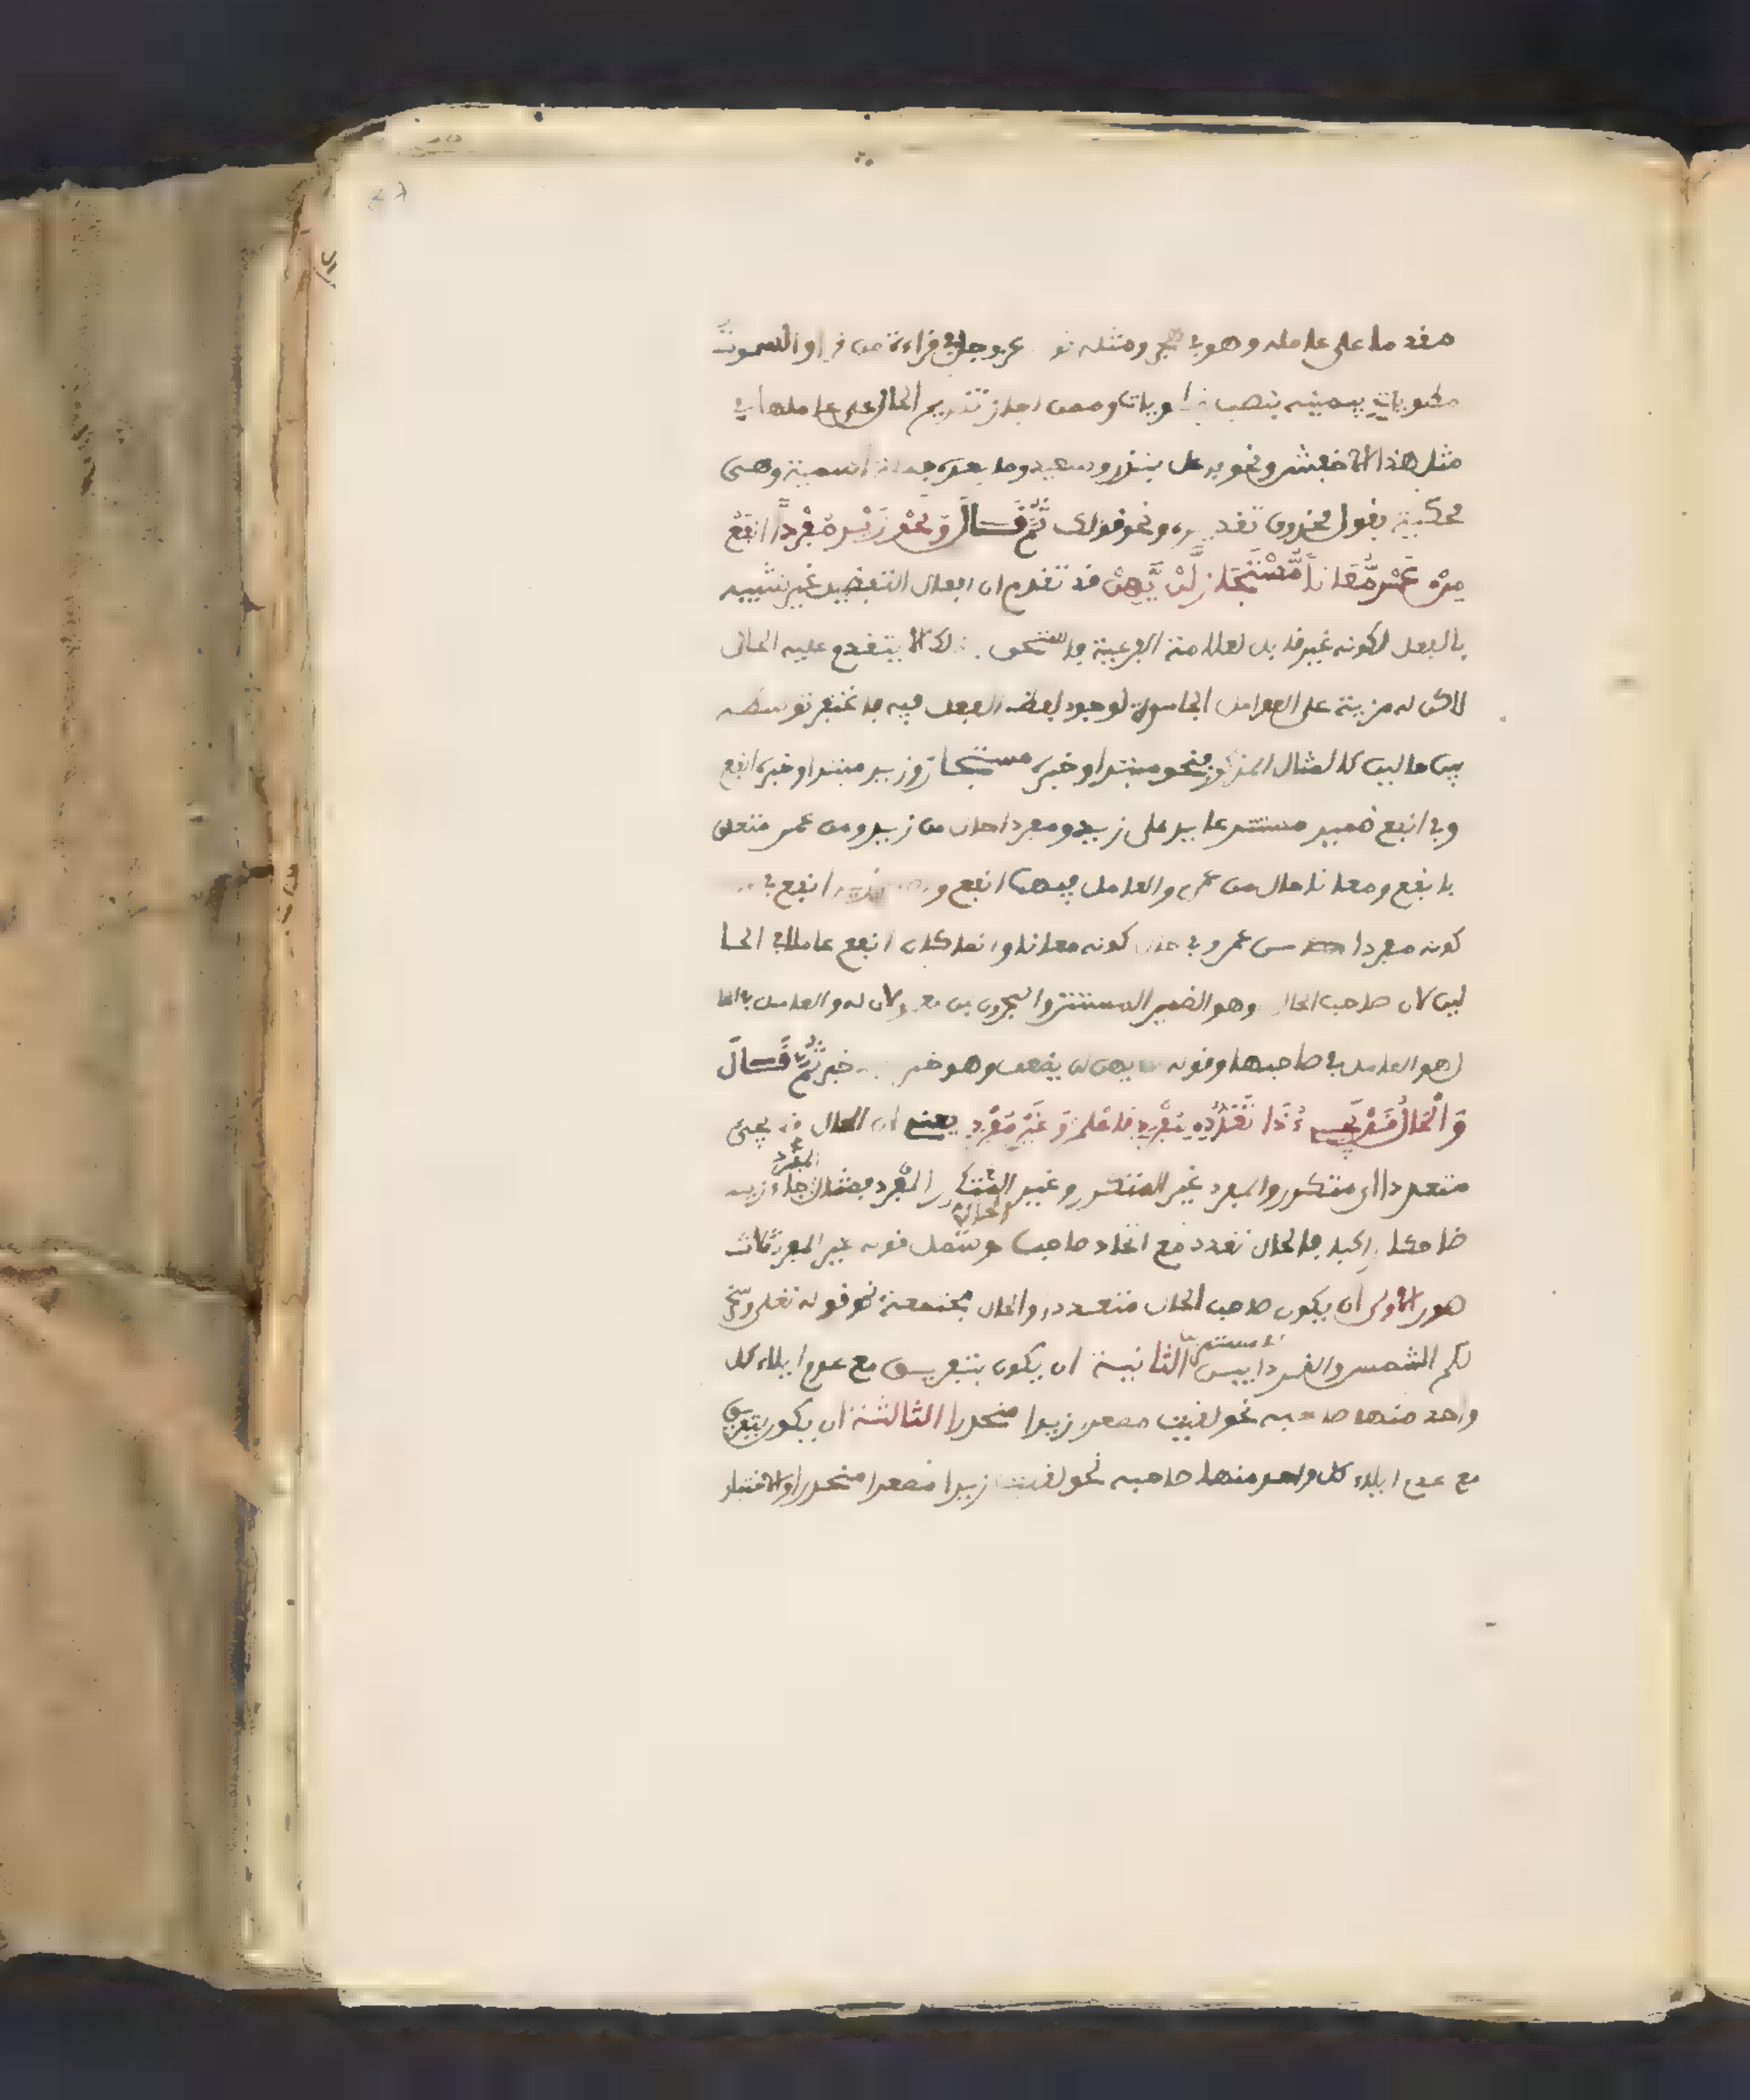 مقدما على عامله وهو في هجر ومثله عز وجل في قراءة من قرا والسموت
مطويات بيمينه بنصب مطويات وممن اجاز تقديم الحال على عاملها في
مثل هذا الاخفش ونحو مبتدا وسعيد وما بعده جملة اسمية وهي
محكية بقول محذوف تقديره ونحو قولك ثم قال ونحو زيد مفردا انفع
من عمرو معانا مستجاز لن يهن قد تقدم ان افعل التفضيل غير شبيه
بالفعل لكونه غير قابل لعلامته الفرعية فاستحق بذلك الا يتقدم عليه الحال
لاكن له مزية على العوامل الجامدة لوجود لفظ الفعل فيه فاغتفر توسطه
بين حالين كالمثال المذكور فنحو مبتدا وخبره مستجاز وزيد مبتدا وخبره انفع
وفي انفع ضمير مستتر عايد على زيد ومفردا حال من زيد ومن عمر متعلق
بانفع ومعانا حال من عمرو والعامل فيهما انفع انفع في
كونه مفردا من عمرو في حال كونه معانا وانما كان انفع عاملا في الحا
لين لان صاحب الحال وهو الضمير المستتر والمجرور بمن معمولان له والعامل في الحا
ل هو العامل في صاحبها وقوله لن يهن لن يضعف وهو خبر خبر ثم قال
والحال قد يجيء ذا تعدد لمفرد فاعلم وغير مفرد يعني ان الحال قد يجيئ
متعددا اي متكررا والمفرد غير المتكرر وغير المفرد المتكرر فمثال المفرد جاء زيد
ضاحكا راكبا فالحال تعدد مع اتحاد صاحبها وشمل قوله غير المفرد ثلاث
صور الاولى ان يكون صاحب الحال متعددا والحال مجتمعة نحو قوله تعلى وسخر
لكم الشمس والقمر دايبين الثانية ان يكون بتفريق مع ايلاء كل
واحد منهما صاحبه نحو لقيت مصعدا زيدا منحدرا الثالثة ان يكون بتفريق
مع عدم ايلاء كل واحد منهما صاحبه نحو لقيت زيدا مصعدا منحدرا والاختيار